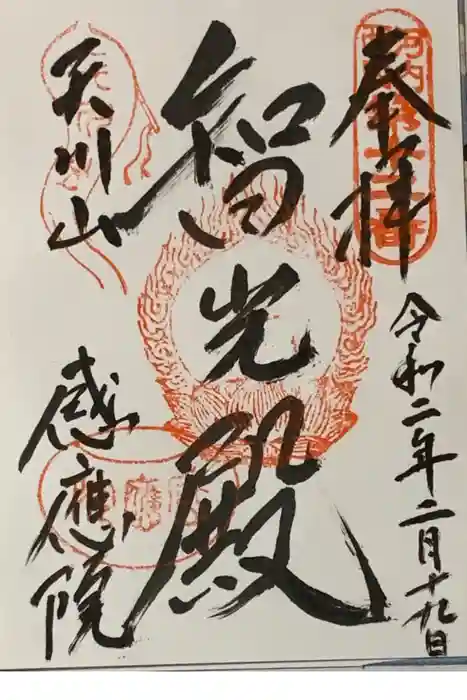 奉拝
令和二年二月十九日
智光殿
天川山
感應院